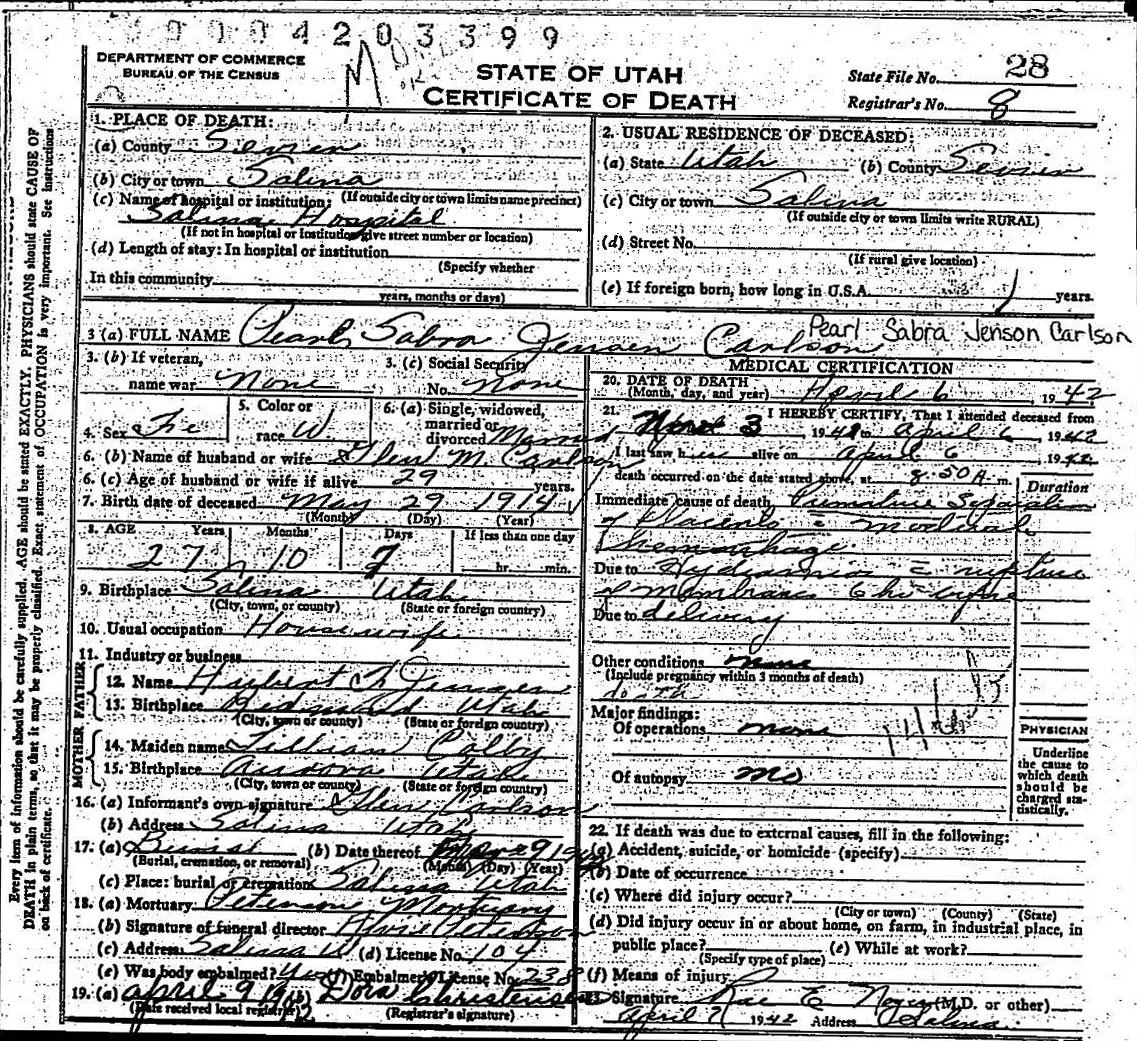 0004203399
DEPARTMENT OF COMMERCE
BUREAU OF THE CENSUS
M
STATE OF UTAH
CERTIFICATE OF DEATH
State File No. 28
Registrar's No. 8
Every item of information should be carefully supplied. AGE should be stated EXACTLY. PHYSICIANS should state CAUSE OF
DEATH in plain terms, so that it may be properly classified. Exact statement of OCCUPATION is very important. See instructions
on back of certificate.
1. PLACE OF DEATH:
(a) County Sevier
(b) City or town Salina
(If outside city or town limits name precinct)
(c) Name of hospital or institution:
Salina Hospital
(If not in hospital or institution give street number or location)
(d) Length of stay: In hospital or institution
(Specify whether
In this community
years, months or days)
2. USUAL RESIDENCE OF DECEASED:
(a) State Utah (b) County Sevier
(c) City or town Salina
(If outside city or town limits write RURAL)
(d) Street No.
(If rural give location)
(e) If foreign born, how long in U.S.A. years.
3 (a) FULL NAME Pearl Sabra Jensen Carlson
Pearl Sabra Jenson Carlson
3. (b) If veteran,
name war None
3. (c) Social Security
No. None
4. Sex Fe
5. Color or
race W
6. (a) Single, widowed,
married or
divorced Married
6. (b) Name of husband or wife Glen M. Carlson
6. (c) Age of husband or wife if alive 29 years.
7. Birth date of deceased May 29 1914
(Month) (Day) (Year)
8. AGE Years Months Days If less than one day
27 10 7 hr. min.
9. Birthplace Salina Utah
(City, town, or county) (State or foreign country)
10. Usual occupation Housewife
11. Industry or business
FATHER
12. Name Hubert Jensen
13. Birthplace Redmond Utah
(City, town or county) (State or foreign country)
MOTHER
14. Maiden name Lillian Colby
15. Birthplace Utah
(City, town or county) (State or foreign country)
16. (a) Informant's own signature Glen Carlson
(b) Address Salina Utah
17. (a) Burial (b) Date thereof 9 1942
(Burial, cremation, or removal) (Month) (Day) (Year)
(c) Place: burial or cremation Salina Utah
18. (a) Mortuary Peterson Mortuary
(b) Signature of funeral director Peterson
(c) Address Salina U (d) License No. 104
(e) Was body embalmed? Yes (f) Embalmer's License No. 238
19. (a) April 9 1942 (b) Dora Christensen
(Date received local registrar) (Registrar's signature)
MEDICAL CERTIFICATION
20. DATE OF DEATH
(Month, day, and year) April 6 1942
21. I HEREBY CERTIFY, That I attended deceased from
3 1942 to April 6 1942
I last saw her alive on April 6 1942
death occurred on the date stated above, at 8:50 A. m.
Duration
Immediate cause of death Premature Separation
of Placenta c
hemorrhage
Due to Hydramnios c rupture
of membranes 6 hr before
Due to delivery
Other conditions none
(Include pregnancy within 3 months of death)
death
Major findings:
Of operations none
Of autopsy no
PHYSICIAN
Underline
the cause to
which death
should be
charged sta-
tistically.
22. If death was due to external causes, fill in the following:
(a) Accident, suicide, or homicide (specify)
(b) Date of occurrence
(c) Where did injury occur?
(City or town) (County) (State)
(d) Did injury occur in or about home, on farm, in industrial place, in
public place? (e) While at work?
(Specify type of place)
(f) Means of injury
23. Signature Rae E. Noyes (M.D. or other)
April 7 1942 Address Salina